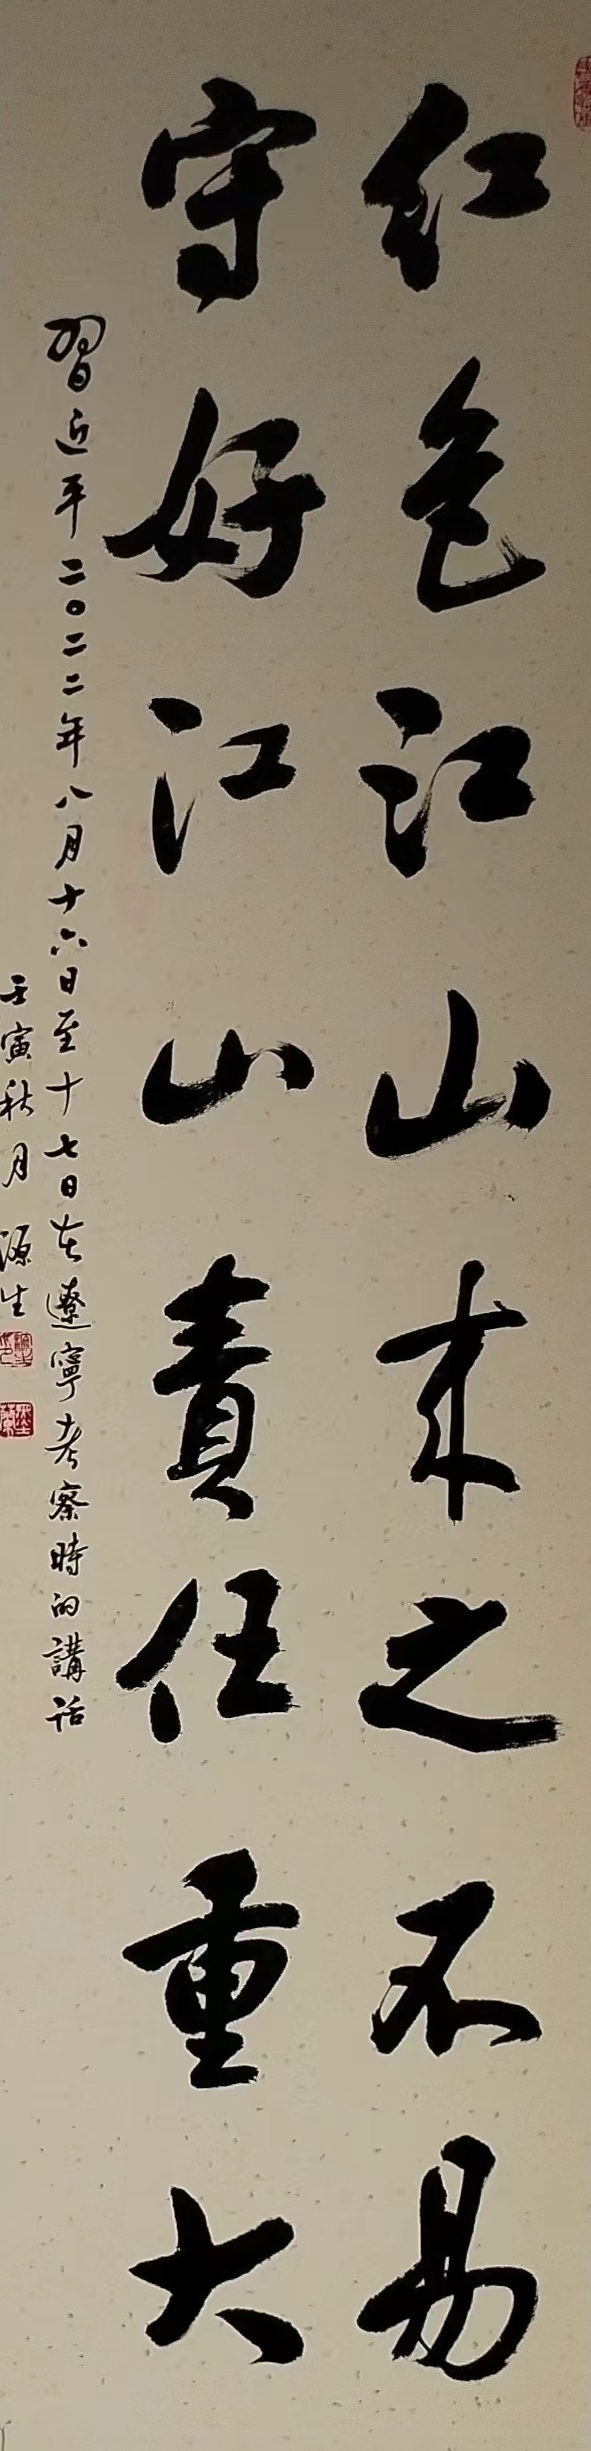 红色江山来之不易
守好江山责任重大
習近平二〇二二年八月十六日至十七日在遼寧考察時的講话
壬寅秋月源生